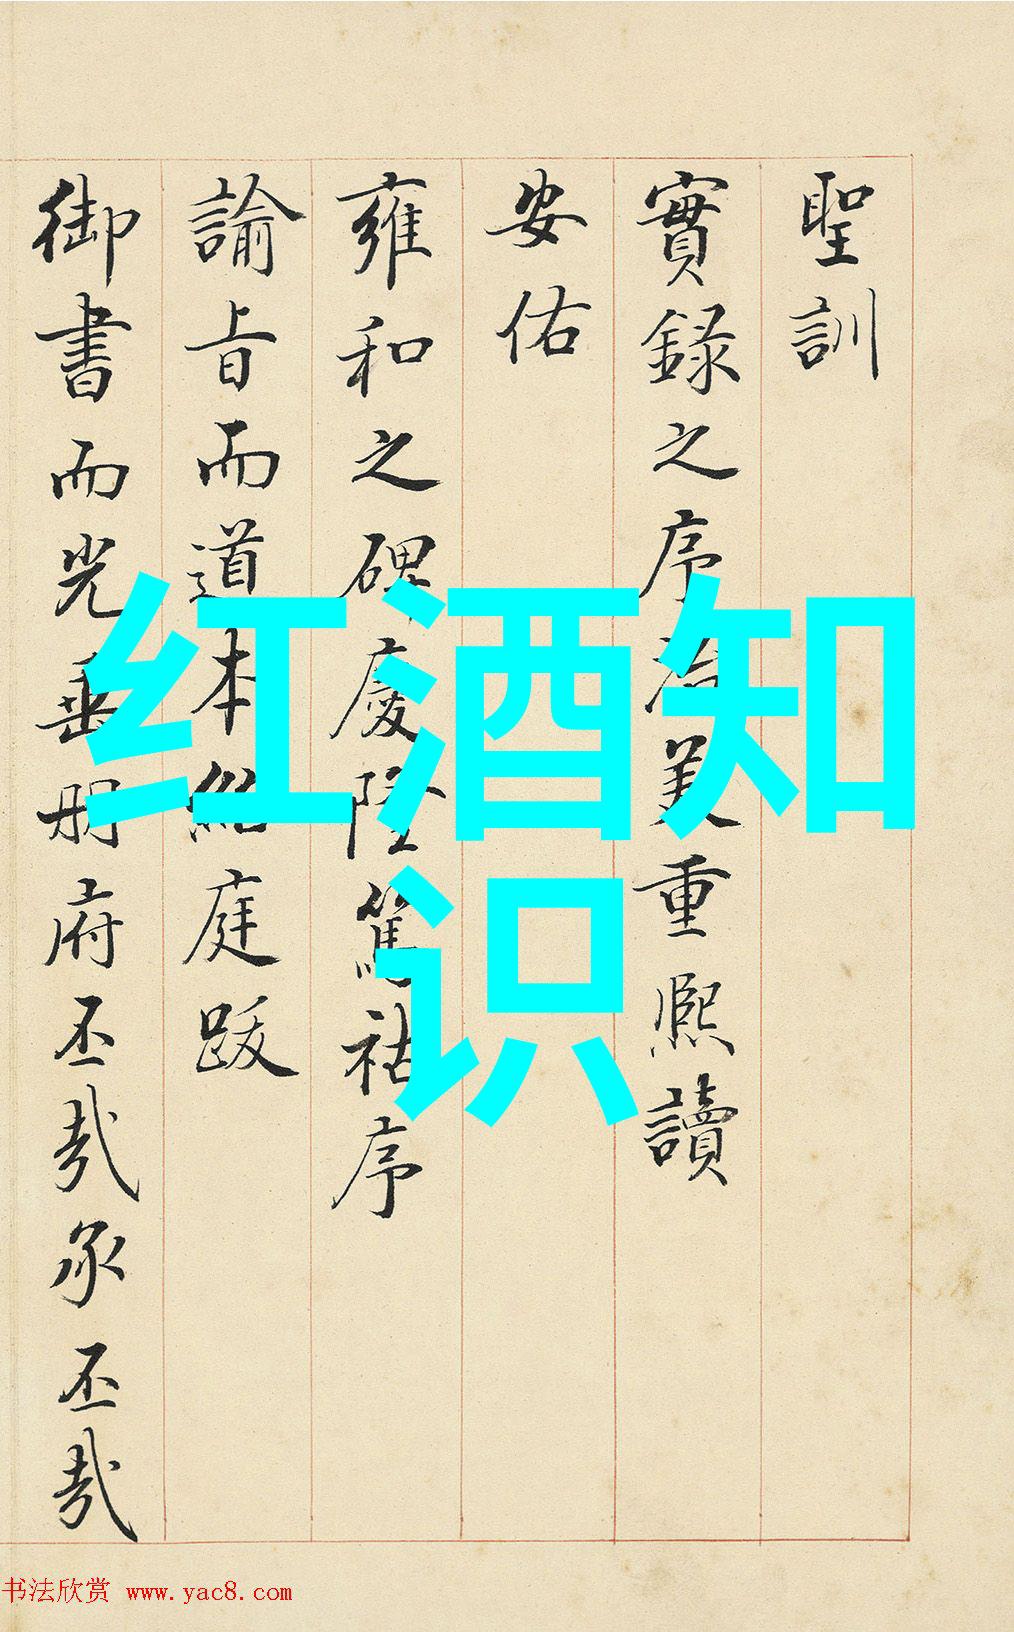 聖訓
實錄之序洽美重熙讀
安佑
雍和之碑慶隆篤祜序
諭旨而道本紹庭跋
御書而光垂册府丕哉承丕哉
红酒知
识
书法欣赏 www.yac8.com